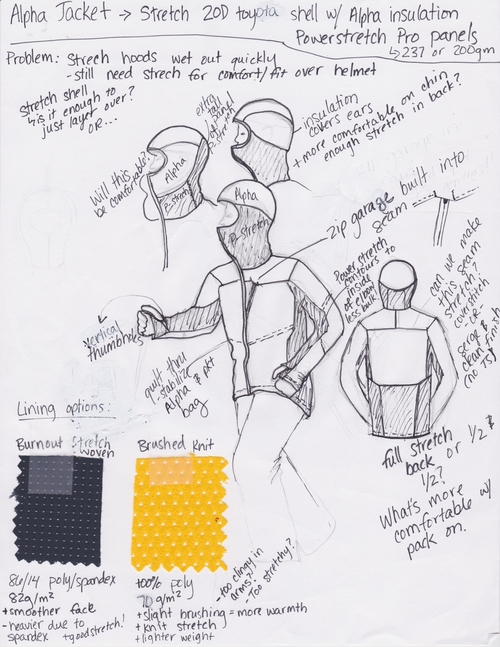 Alpha Jacket → Stretch 20D toyota shell w/ Alpha insulation
Powerstretch Pro panels
↳ 237 or 200gm
Problem: Strech hoods wet out quickly
- still need strech for comfort/fit over helmet
Stretch shell
↳ is it enough to
just layer over?
OR...
extra
tall
panel
of
P. str
- insulation
covers ears
+ more comfortable on chin
enough stretch in back?
Will this
be comfortable?
Alpha
P. stretch
Alpha
P. Stretch
zip garage built into
seam
Power stretch
contours to
inside
of elbow
less bulk
can we make
this seam
stretch?
coverstitch
-OR-
serge
clean fin
(no TS)
vertical
thumbhole
quilt thru
- stabilize
Alpha & pkt
bag
Lining options:
Burnout Stretch
Woven
Brushed Knit
full stretch
back or 1/2 &
1/2?
What's more
comfortable w/
pack on.
86/14 poly/spandex
82g/m²
+ smoother face
- heavier due to
spandex + good stretch!
100% poly
70 g/m²
+ slight brushing = more warmth
+ knit stretch
+ lighter weight
- too clingy in
arms?
- Too stretchy?